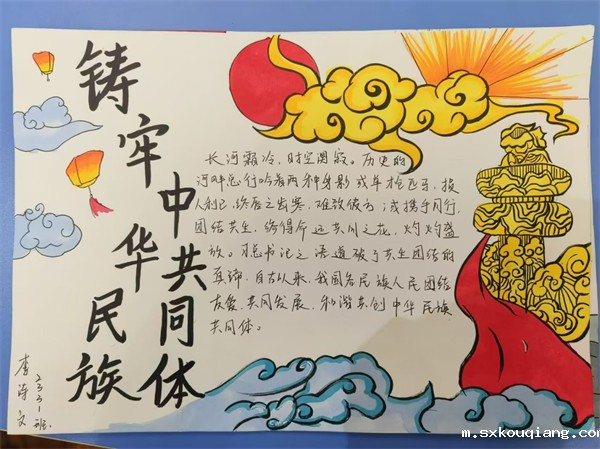 铸牢中华民族
共同体
长河霜冷，时空阒寂。历史的
河畔总行吟着两种身影或单枪匹马，损
人利己，终层之出寒，难致彼方；或携手同行，
团结共生，终得命运共同之花，灼灼盛
放。习总书记之语道破了共生团结的
真谛，自古以来，我国各民族人民团结
友爱、共同发展、和谐共创中华民族
共同体。
李诗文
2331班.
m.sxkouqiang.com